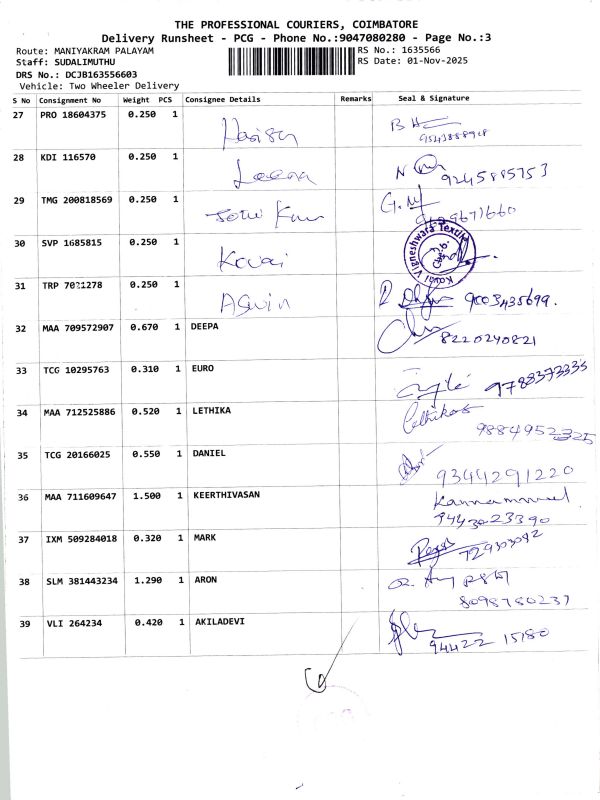 THE PROFESSIONAL COURIERS, COIMBATORE
Delivery Runsheet - PCG - Phone No.:9047080280 - Page No.:3
Route: MANIYAKRAM PALAYAM RS No.: 1635566
Staff: SUDALIMUTHU RS Date: 01-Nov-2025
DRS No.: DCJB163556603
Vehicle: Two Wheeler Delivery
S No Consignment No Weight PCS Consignee Details Remarks Seal & Signature
27 PRO 18604375 0.250 1
28 KDI 116570 0.250 1 Leena 9245885753
29 TMG 200818569 0.250 1 G.M
30 SVP 1685815 0.250 1 Kovai Kovai Vigneshwara Textile
31 TRP 7021278 0.250 1 Aswin 9003435699.
32 MAA 709572907 0.670 1 DEEPA 8220240821
33 TCG 10295763 0.310 1 EURO 9788373335
34 MAA 712525886 0.520 1 LETHIKA Lethikas 9884952325
35 TCG 20166025 0.550 1 DANIEL 9344291220
36 MAA 711609647 1.500 1 KEERTHIVASAN
9443023390
37 IXM 509284018 0.320 1 MARK
38 SLM 381443234 1.290 1 ARON
8098780237
39 VLI 264234 0.420 1 AKILADEVI 94422 15180